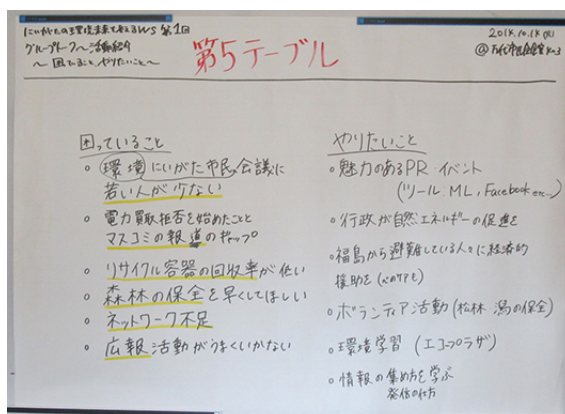 にいがたの環境未来を考えるWS 第1回
グループトーク～活動紹介
～困っていること、やりたいこと～
第5テーブル
@万代市民会館
困っていること
環境にいがた市民会議に
若い人が少ない
電力買取拒否を始めたことと
マスコミの報道のギャップ
リサイクル容器の回収率が低い
森林の保全を早くしてほしい
ネットワーク不足
広報活動がうまくいかない
やりたいこと
魅力のあるPRイベント
(ツール:ML, Facebook etc...)
行政が自然エネルギーの促進を
福島から避難している人々に経済的
援助を(心のケアも)
ボランティア活動(松林 潟の保全)
環境学習(エコープラザ)
情報の集め方を学ぶ
発信の仕方